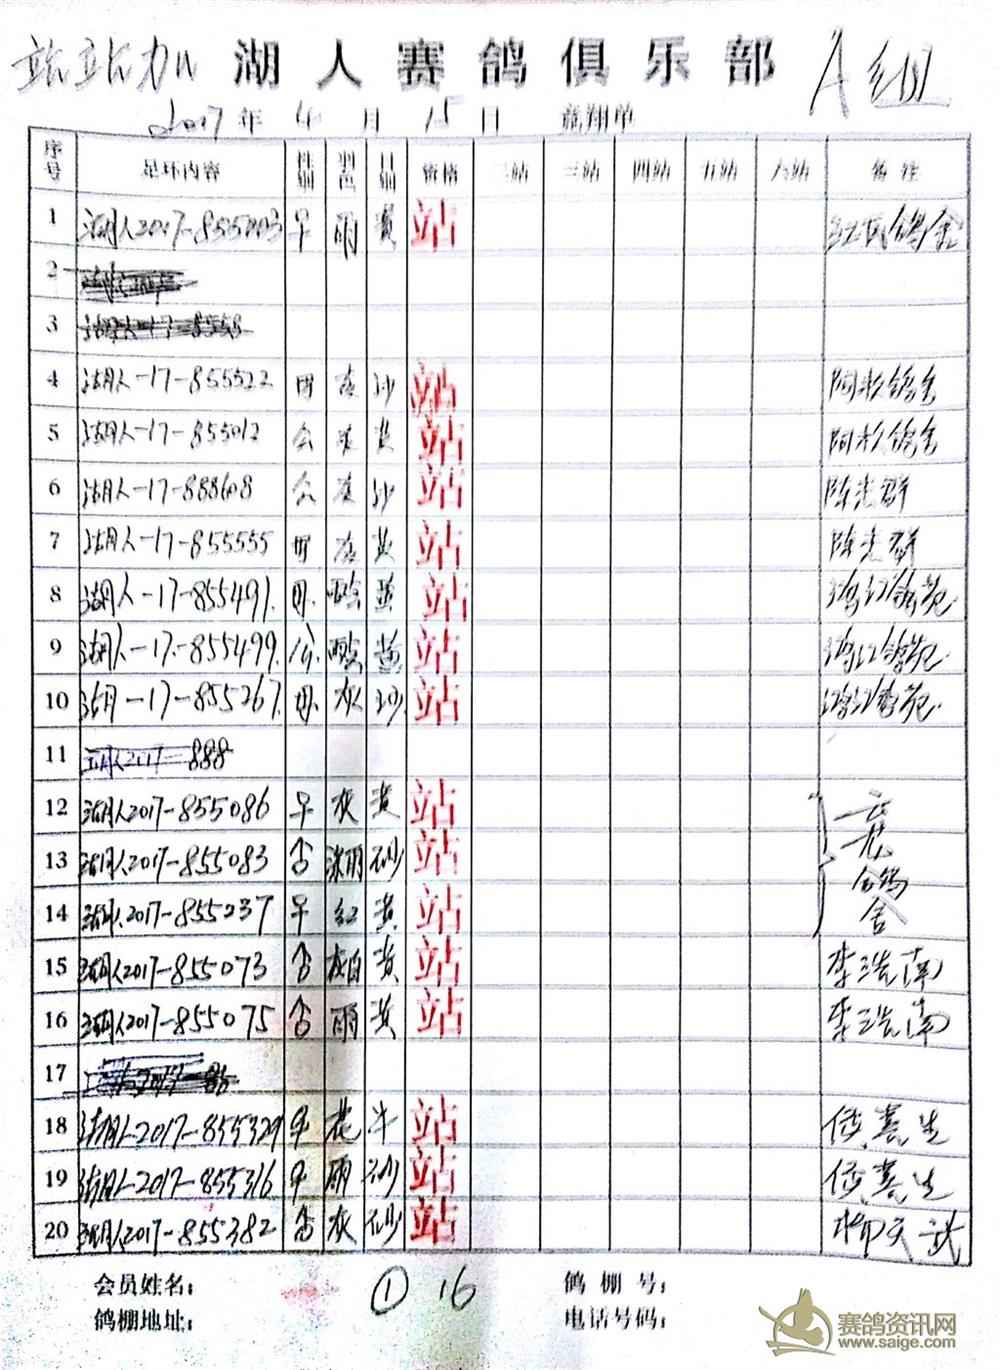 站站加 湖人赛鸽俱乐部 A组
2017年 4月 15日 竞翔单
序号 足环内容 性别 羽色 眼 二站 三站 四站 五站 六站 备注
1 湖人2017-855003 早 雨 黄 站 红民鸽舍
2
3 湖人-17-8555
4 湖人-17-855522 母 灰 沙 站 阿彩鸽舍
5 湖人-17-855012 公 灰 黄 站 阿彩鸽舍
6 湖人-17-888608 公 灰 沙 站 陈光群
7 湖人-17-855555 母 灰 黄 站 陈光群
8 湖人-17-855491. 母. 黄 站
9 湖人-17-855499. 公. 黄 站
10 湖人-17-855267. 母. 灰 沙. 站
11 湖人2017-888
12 湖人2017-855086 早 灰 黄 站
13 湖人2017-855083 合 深雨 砂 站
14 湖人2017-855237 早 红 黄 站
鸽舍
15 湖人2017-855073 合 灰白 黄 站 李浩南
16 湖人2017-855075 合 雨 黄 站 李浩南
17
18 湖人2017-855329 早 花 牛 站
19 湖人2017-855316 早 雨 砂 站
20 湖人2017-855382 合 灰 砂 站 柳天武
会员姓名： ① 16 鸽棚号：
鸽棚地址： 电话号码：
赛鸽资讯网
www.saige.com